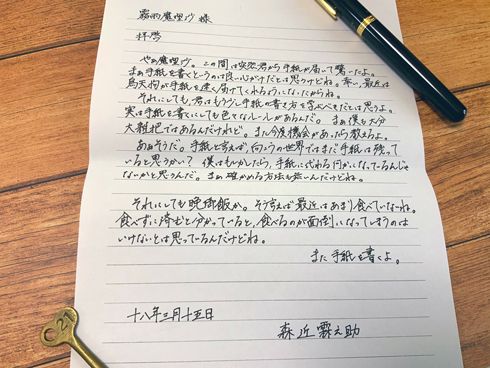 霧雨魔理沙 様
拝啓
やあ魔理沙。この間は突然君から手紙が届いて驚いたよ。
まあ手紙を書くというのは良い心がけだとは思うけどね。幸い、最近は
烏天狗が手紙を速く届けてくれるようになったからね。
それにしても、君はもう少し手紙の書き方を学ぶべきだとは思うよ。
実は手紙を書くにも色々なルールがあるんだ。まあ僕も大分
大雑把ではあるんだけれど。また今度機会があったら教えるよ。
ああそうだ。手紙と言えば、向こうの世界ではまだ手紙は残って
いると思うかい？僕はもしかしたら、手紙に代わる何かになっているんじゃ
ないかと思うんだ。まあ確かめる方法も無いんだけどね。
それにしても晩御飯か。そう言えば最近はあまり食べていないね。
食べずに済むと分かっていると、食べるのが面倒になってしまうのは
いけないとは思っているんだけどね。
また手紙を書くよ。
十八年三月十五日
森近霖之助
C21